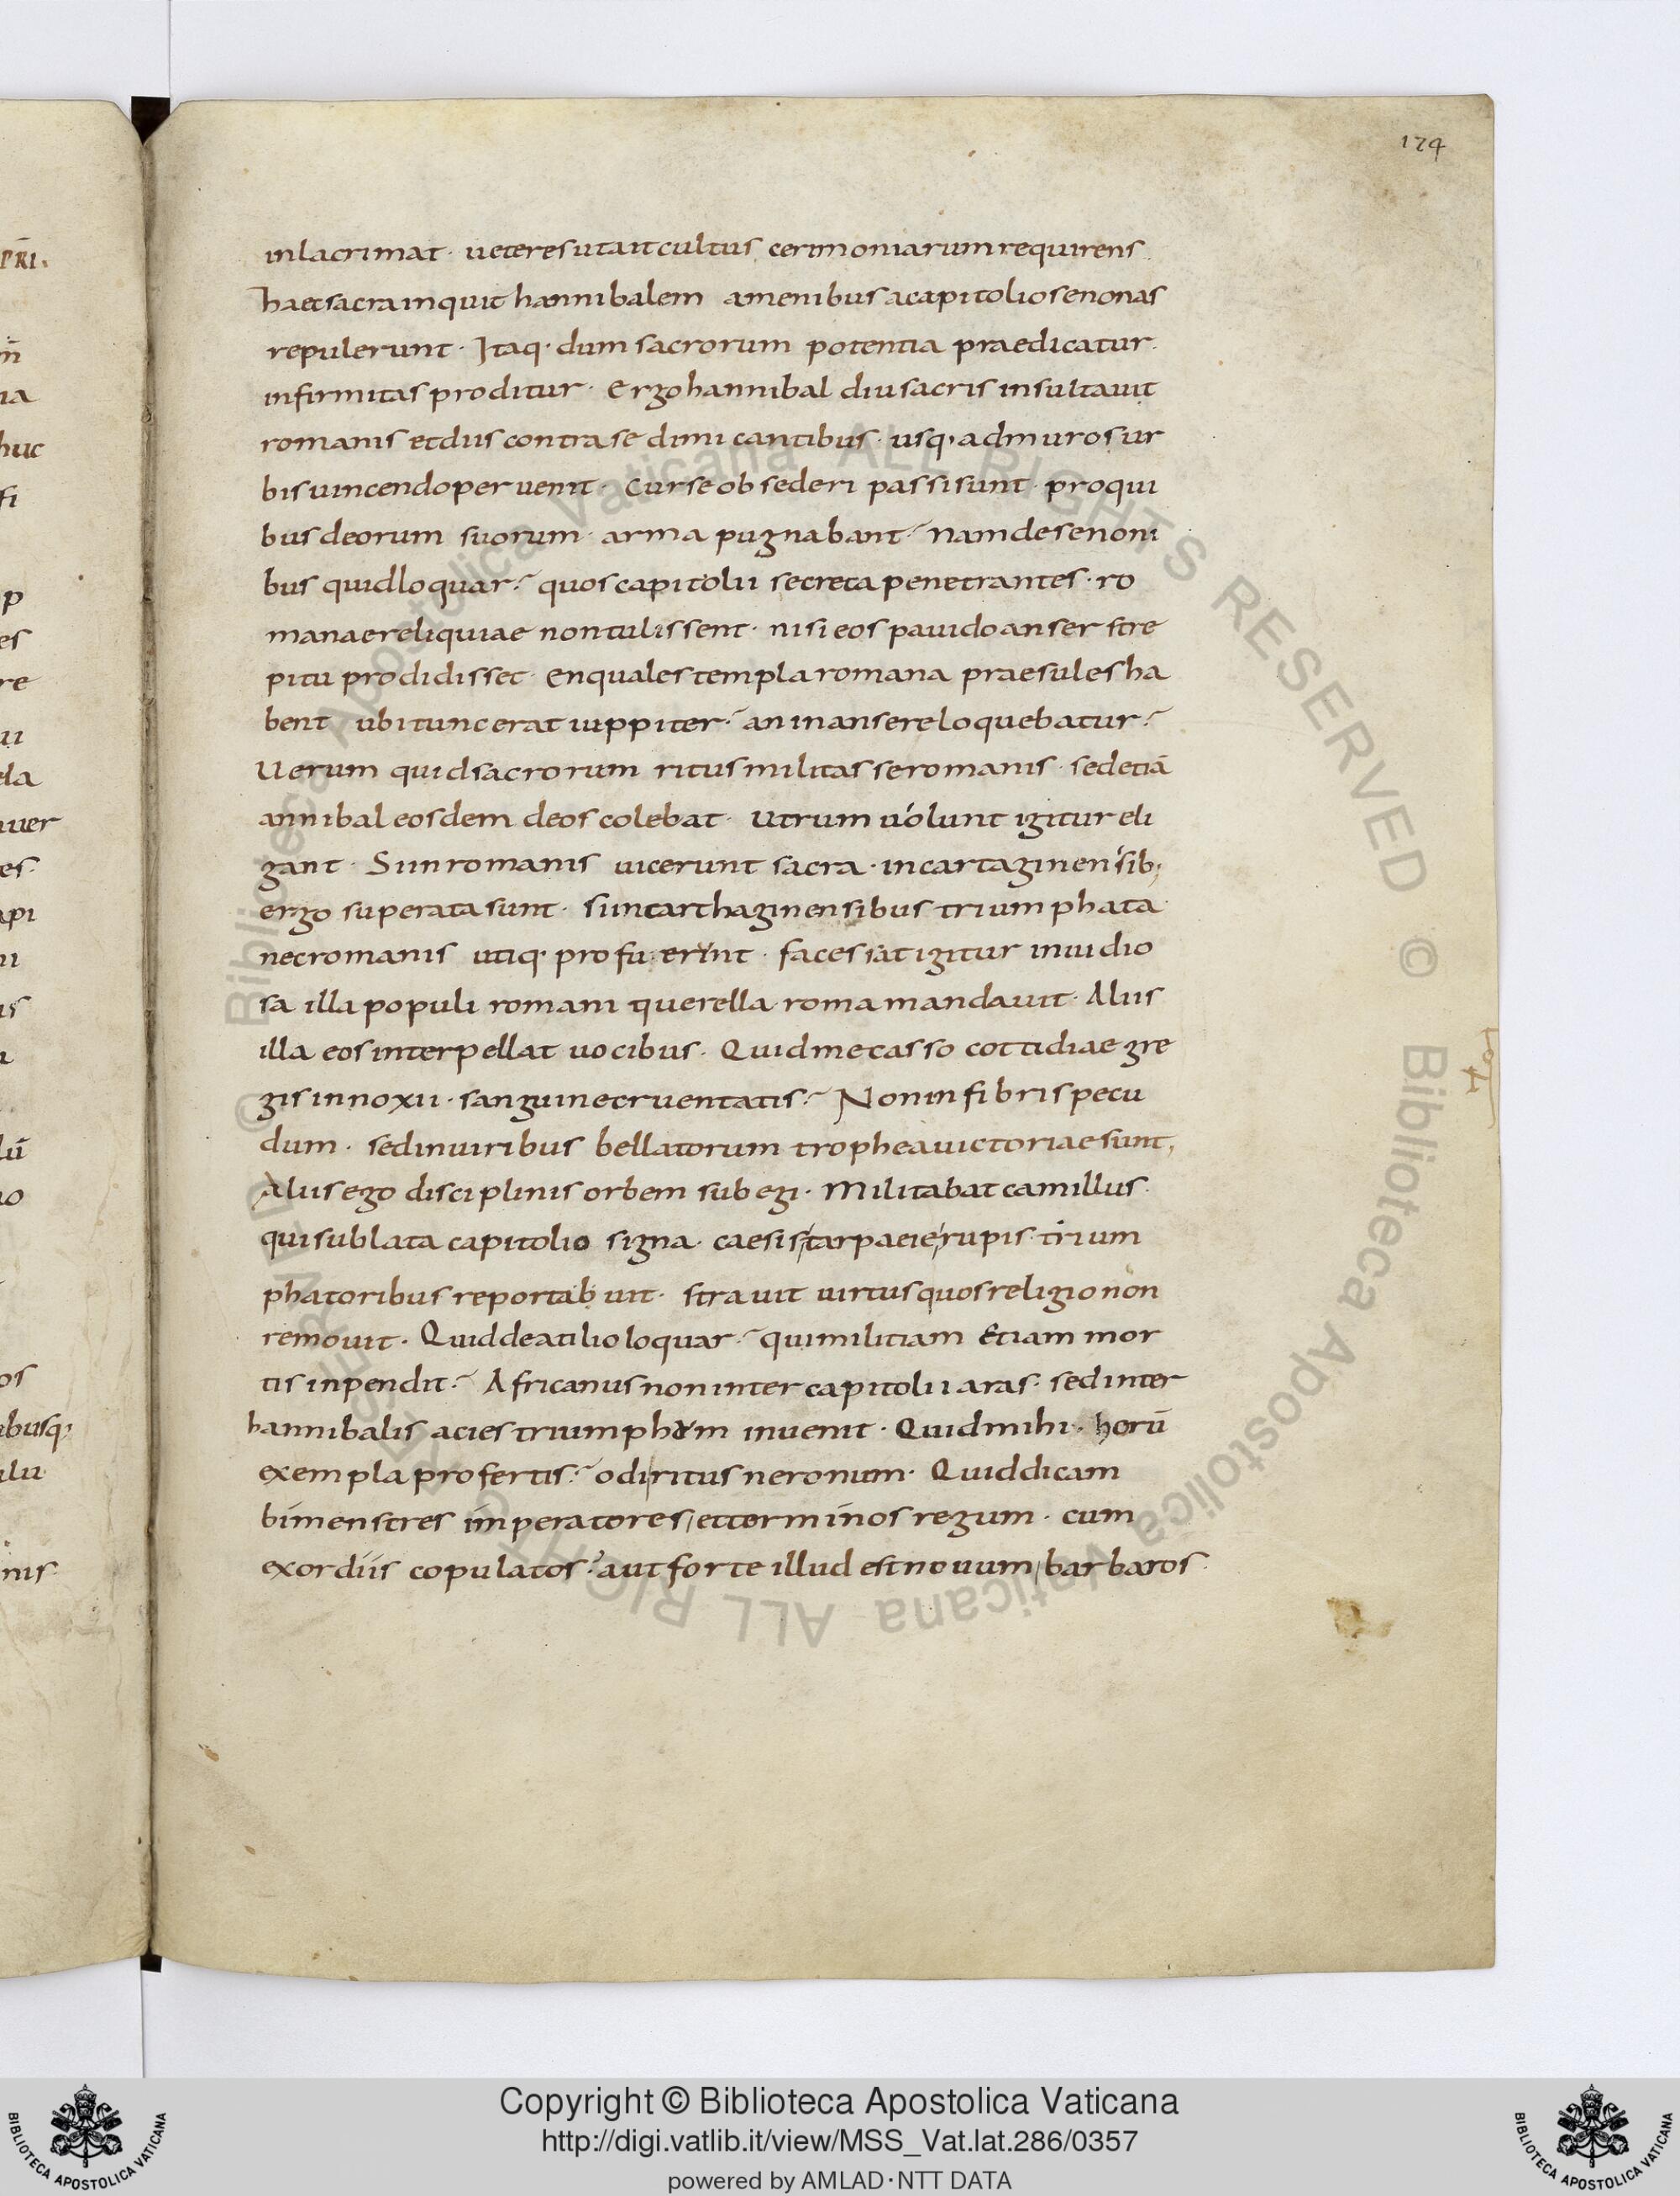 174
inlacrimat· ueteres ut ait cultus cerimoniarum requirens
haec sacra inquit hannibalem amenibus acapitolio senonas
repulerunt· Itaq· dum sacrorum potentia praedicatur·
infirmitas proditur· ergo hannibal diu sacris insultauit
romanis et diis contra se dimicantibus· usq· ad muros ur
bis uincendo peruenit· cur se obsederi passi sunt· pro qui
bus deorum suorum· arma pugnabant? nam de senoni
bus quid loquar? quos capitolii secreta penetrantes· ro
manae reliquiae non tulissent· nisi eos pauido anser stre
pitu prodidisset· en quales templa romana praesules ha
bent ubi tunc erat iuppiter? an in ansere loquebatur?
Uerum quid sacrorum ritus militasse romanis· sed etiā
annibal eosdem deos colebat· utrum uolunt igitur eli
gant· Si in romanis uicerunt sacra· in cartaginensib;
ergo superata sunt· si in carthaginensibus triumphata·
nec romanis utiq· profuerunt· facessat igitur inuidio
sa illa populi romani querella· roma mandauit· Aliis
illa eos interpellat uocibus· Quid me casso cottidiae gre
gis innoxii· sanguine cruentatis? Non in fibris pecu
dum· sed in uiribus bellatorum trophea uictoriae sunt;
Aliis ego disciplinis orbem subegi· Militabat camillus·
qui sublata capitolio signa· caesis tarpaeie rupis· trium
phatoribus reportabuit· strauit uirtus quos religio non
remouit· Quid de atilio loquar? qui militiam Etiam mor
tis inpendit? Africanus non inter capitolii aras· sed inter
hannibalis acies triumphum inuenit· Quid mihi· horū
exempla profertis? odi ritus neronum· Quid dicam
bimenstres imperatores et terminos regum· cum
exordiis copulatos? aut forte illud est nouum barbaros·
PRI·
huc
fi
p
es
re
ela
uer
es·
api
os
ibusq;
nis·
© Biblioteca Apostolica Vaticana ALL RIGHTS RESERVED © Biblioteca Apostolica Vaticana ALL RIGHTS RESERVED
BIBLIOTECA APOSTOLICA VATICANA
Copyright © Biblioteca Apostolica Vaticana
http://digi.vatlib.it/view/MSS_Vat.lat.286/0357
powered by AMLAD·NTT DATA
BIBLIOTECA APOSTOLICA VATICANA